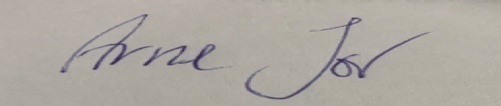 Arne Jor